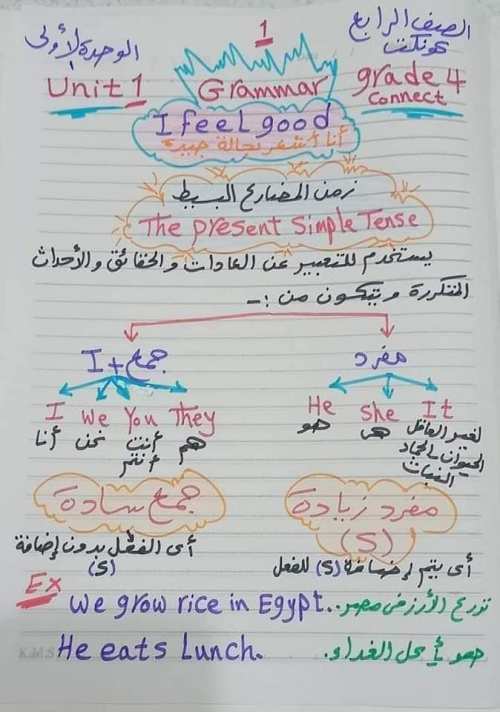 الصف الرابع
كونكت
1
الوحدة الأولى
Unit 1
Grammar
grade 4
Connect
I feel good
أنا أشعر بحالة جيدة
زمن المضارع البسيط
The present Simple Tense
يستخدم للتعبير عن العادات والحقائق والأحداث
المتكررة ويتكون من :-
جمع + I
مفرد
I We You They
أنا نحن أنت هم
أنتم
He She It
هو هى لغير العاقل
الحيوان الجماد
النبات
جمع سادة
مفرد زيادة
(S)
أى الفعل بدون إضافة
(S)
أى يتم إضافة (S) للفعل
Ex
We grow rice in Egypt.. نزرع الأرز فى مصر.
He eats Lunch. هو يأكل الغداء.